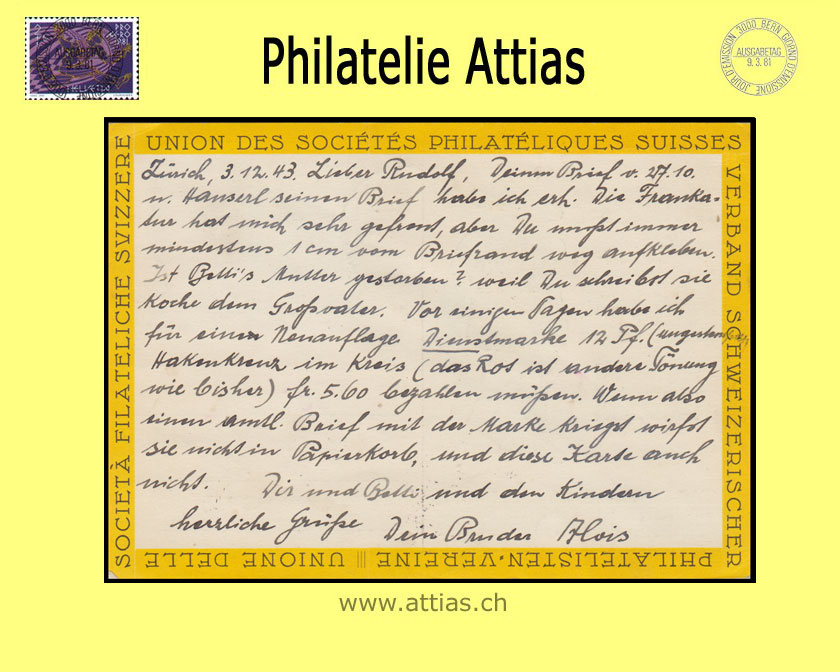 Philatelie Attias
3000 BERN GIORNO D'EMISSIONE
AUSGABETAG
9.3.81
JOUR D'EMISSION
HELVETIA
UNION DES SOCIÉTÉS PHILATÉLIQUES SUISSES
VERBAND SCHWEIZERISCHER
PHILATELISTEN-VEREINE ||| UNIONE DELLE
SOCIETÀ FILATELICHE SVIZZERE
Zürich, 3.12.43. Lieber Rudolf, Deinen Brief v. 27.10.
u. Hanserl seinen Brief habe ich erh. Die Franka-
tur hat mich sehr gefreut, aber Du mußt immer
mindestens 1 cm vom Briefrand weg aufkleben.
Ist Betti's Mutter gestorben? weil Du schreibst sie
koche dem Großvater. Vor einigen Tagen habe ich
für einen Neuauflage Dienstmarke 12 Pf. (
Hakenkreuz im Kreis (das Rot ist andere Tönung
wie bisher) fr. 5.60 bezahlen müßen. Wenn also
einen amtl. Brief mit der Marke kriegst wirfst
sie nicht in Papierkorb, und diese Karte auch
nicht. Dir und Betti und den Kindern
herzliche Grüße Dein Bruder Alois
www.attias.ch